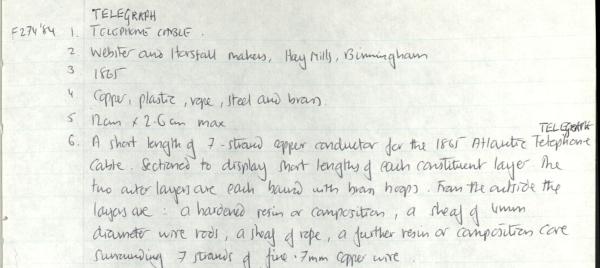 TELEGRAPH
F274'84 1. TELEPHONE CABLE.
2 Webster and Horsfall makers, Hay Mills, Birmingham
3 1865
4 Copper, plastic, rope, steel and brass.
5 12cm x 2.6cm max
TELEGRAPH
6. A short length of 7-strand copper conductor for the 1865 Atlantic Telephone
Cable. Sectioned to display short lengths of each constituent layer. The
two outer layers are each bound with brass hoops. From the outside the
layers are: a hardened resin or composition, a sheaf of 4mm
diameter wire rods, a sheaf of rope, a further resin or composition core
surrounding 7 strands of fine .7mm copper wire.